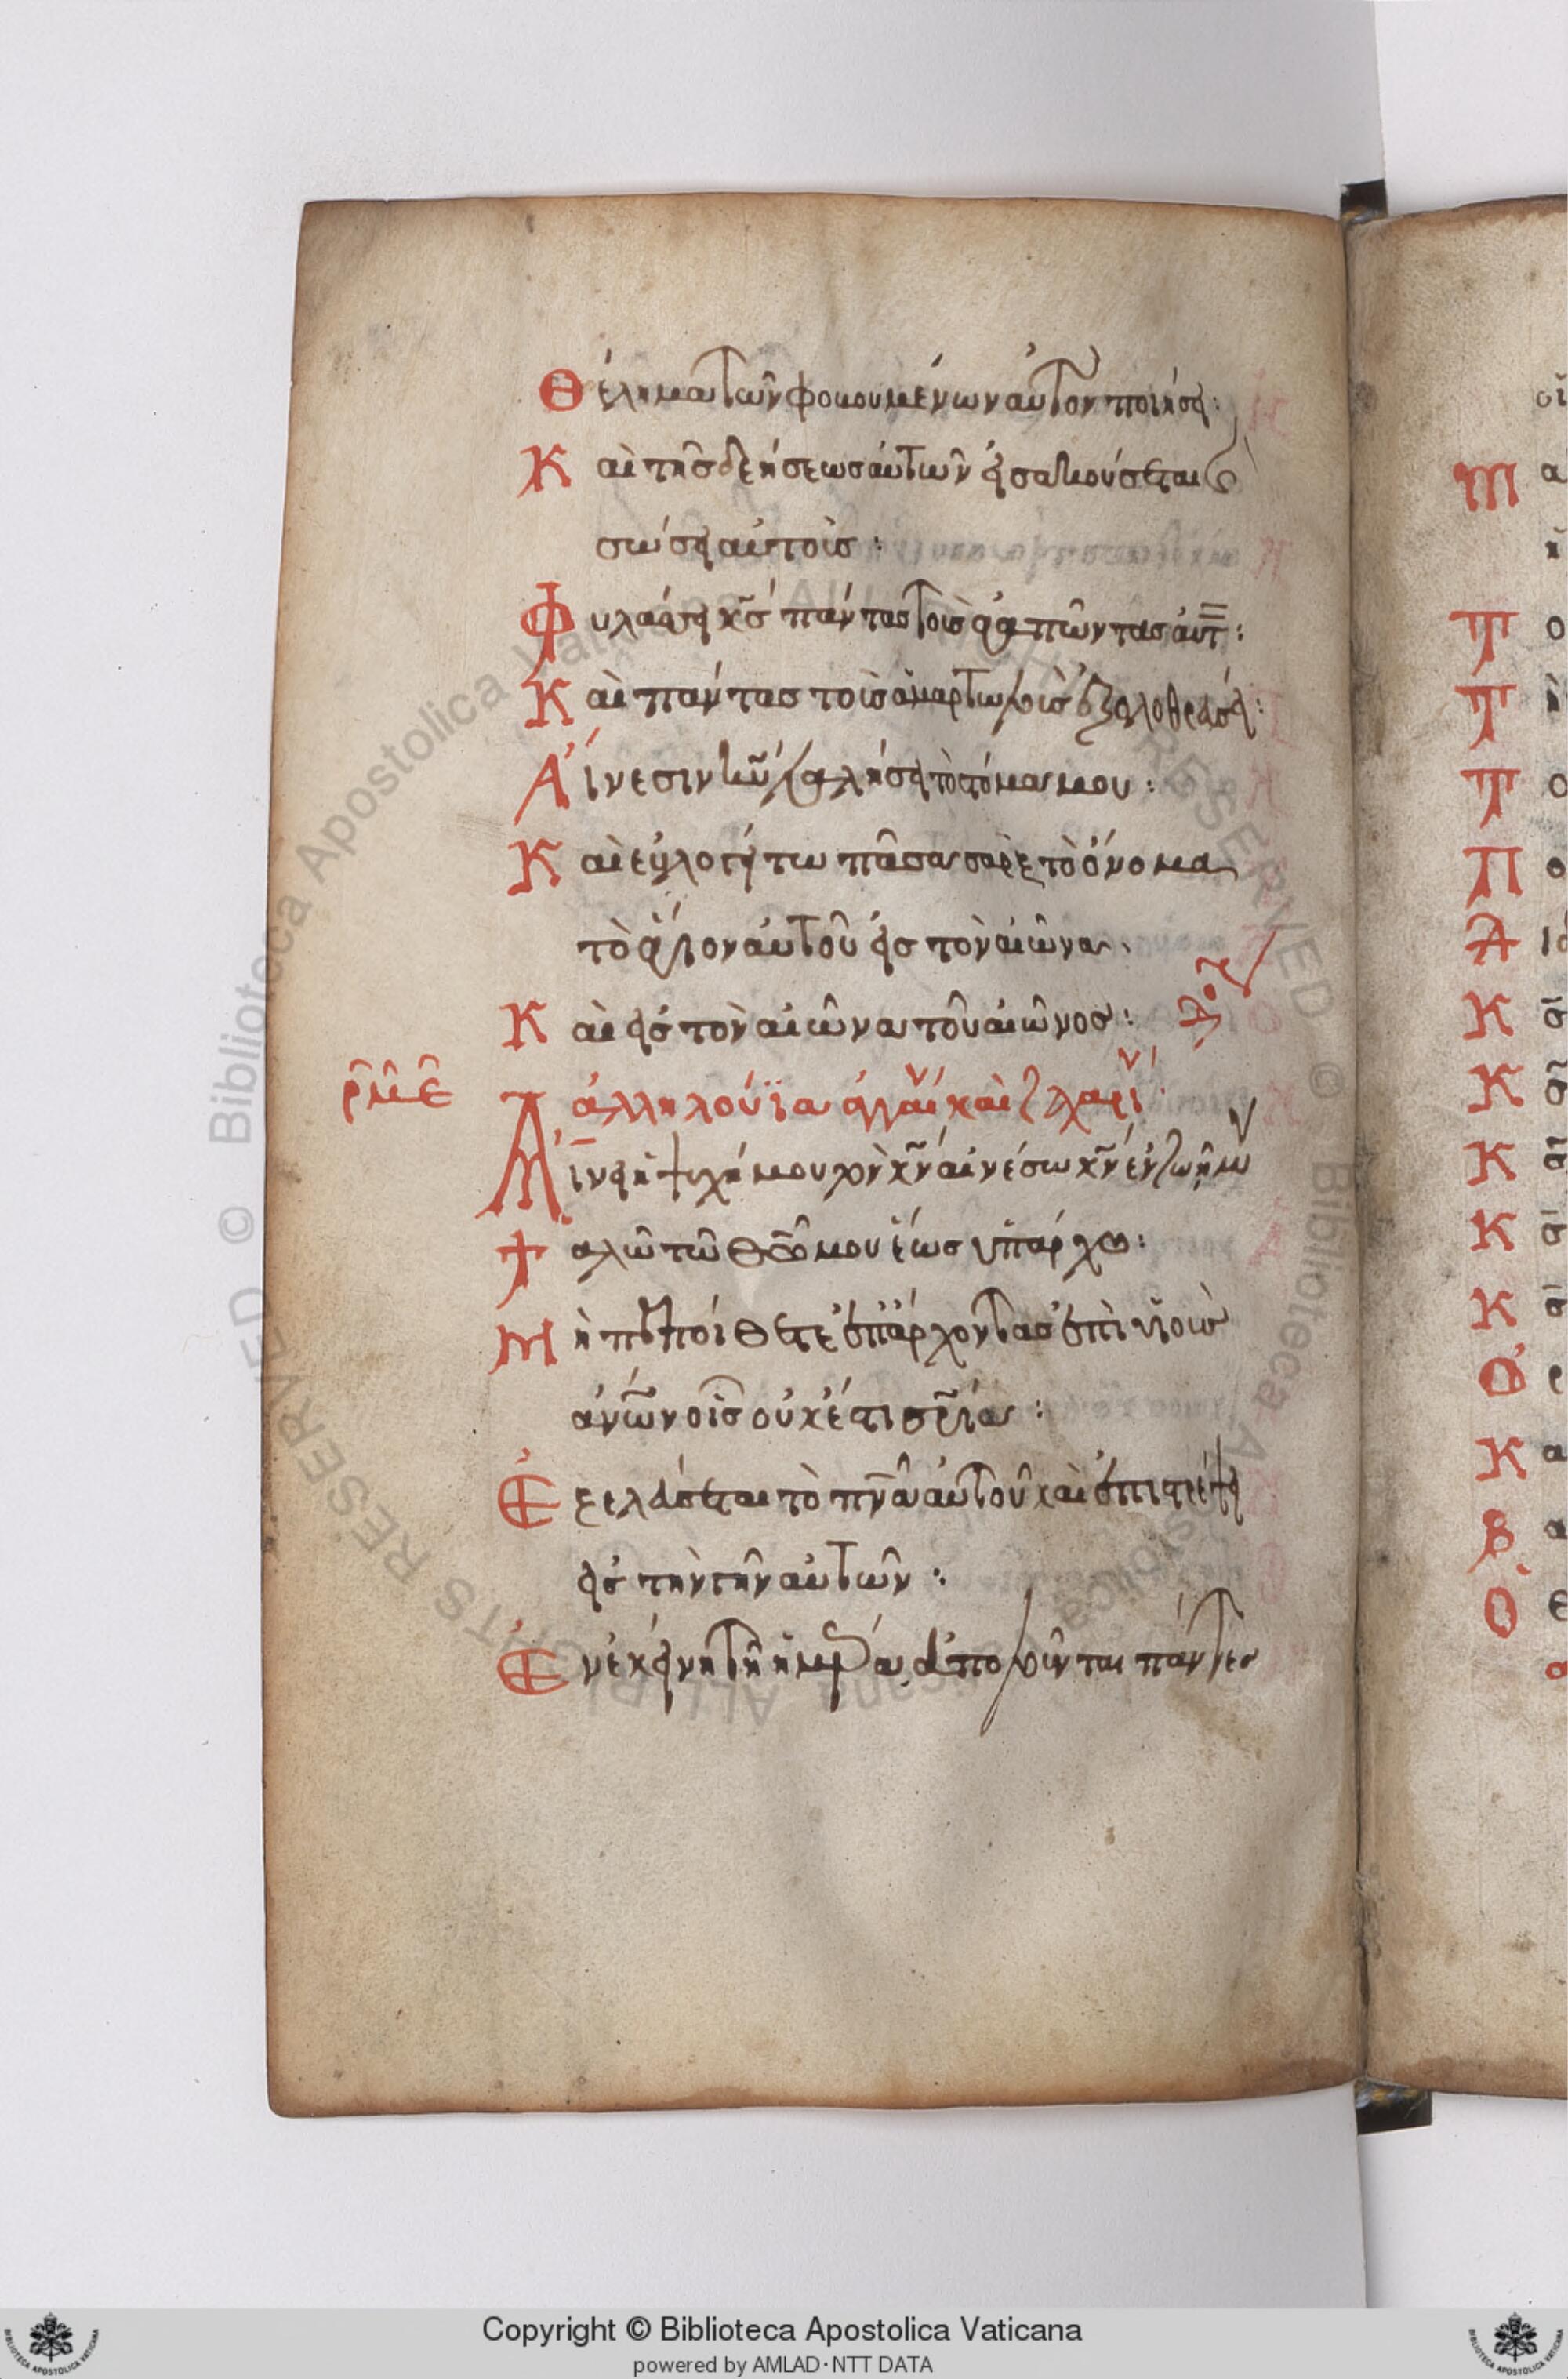 Θέλημα τῶν φοβουμένων αὐτὸν ποιήσει:
Καὶ τῆς δεήσεως αὐτῶν εἰσακούσεται καὶ
σώσει αὐτοὺς:
Φυλάσσει κ̅ς̅ πάντας τοὺς ἀγαπῶντας αὐτ:
Καὶ πάντας τοὺς ἁμαρτωλοὺς ἐξολοθρεύσει:
Αἴνεσιν κ̅υ̅ λαλήσει τὸ στόμα μου:
Καὶ εὐλογείτω πᾶσα σὰρξ τὸ ὄνομα
τὸ ἅγιον αὐτοῦ εἰς τὸν αἰῶνα
Καὶ εἰς τὸν αἰῶνα τοῦ αἰῶνος:
ρ̅μ̅ε̅ ἀλληλούϊα ἀγγαί καὶ ζαχαρί
Αἴνει ἡ ψυχή μου τὸν κ̅ν̅ αἰνέσω κ̅ν̅ ἐν ζωῇ μου
Ψαλῶ τῶ θεῶ μου ἕως ὑπάρχω:
Μὴ πεποίθετε ἐπ' ἄρχοντας ἐπὶ υἱοὺς
ἀν̅ω̅ν οἷς οὐκ ἔστι σ̅ρ̅ία:
Ἐξελεύσεται τὸ πν̅α̅ αὐτοῦ καὶ ἐπιστρέψει
εἰς τὴν γῆν αὐτῶν:
Ἐν ἐκείνη τῆ ἡμέρα ἀπολοῦνται πάντες
Copyright © Biblioteca Apostolica Vaticana
powered by AMLAD·NTT DATA